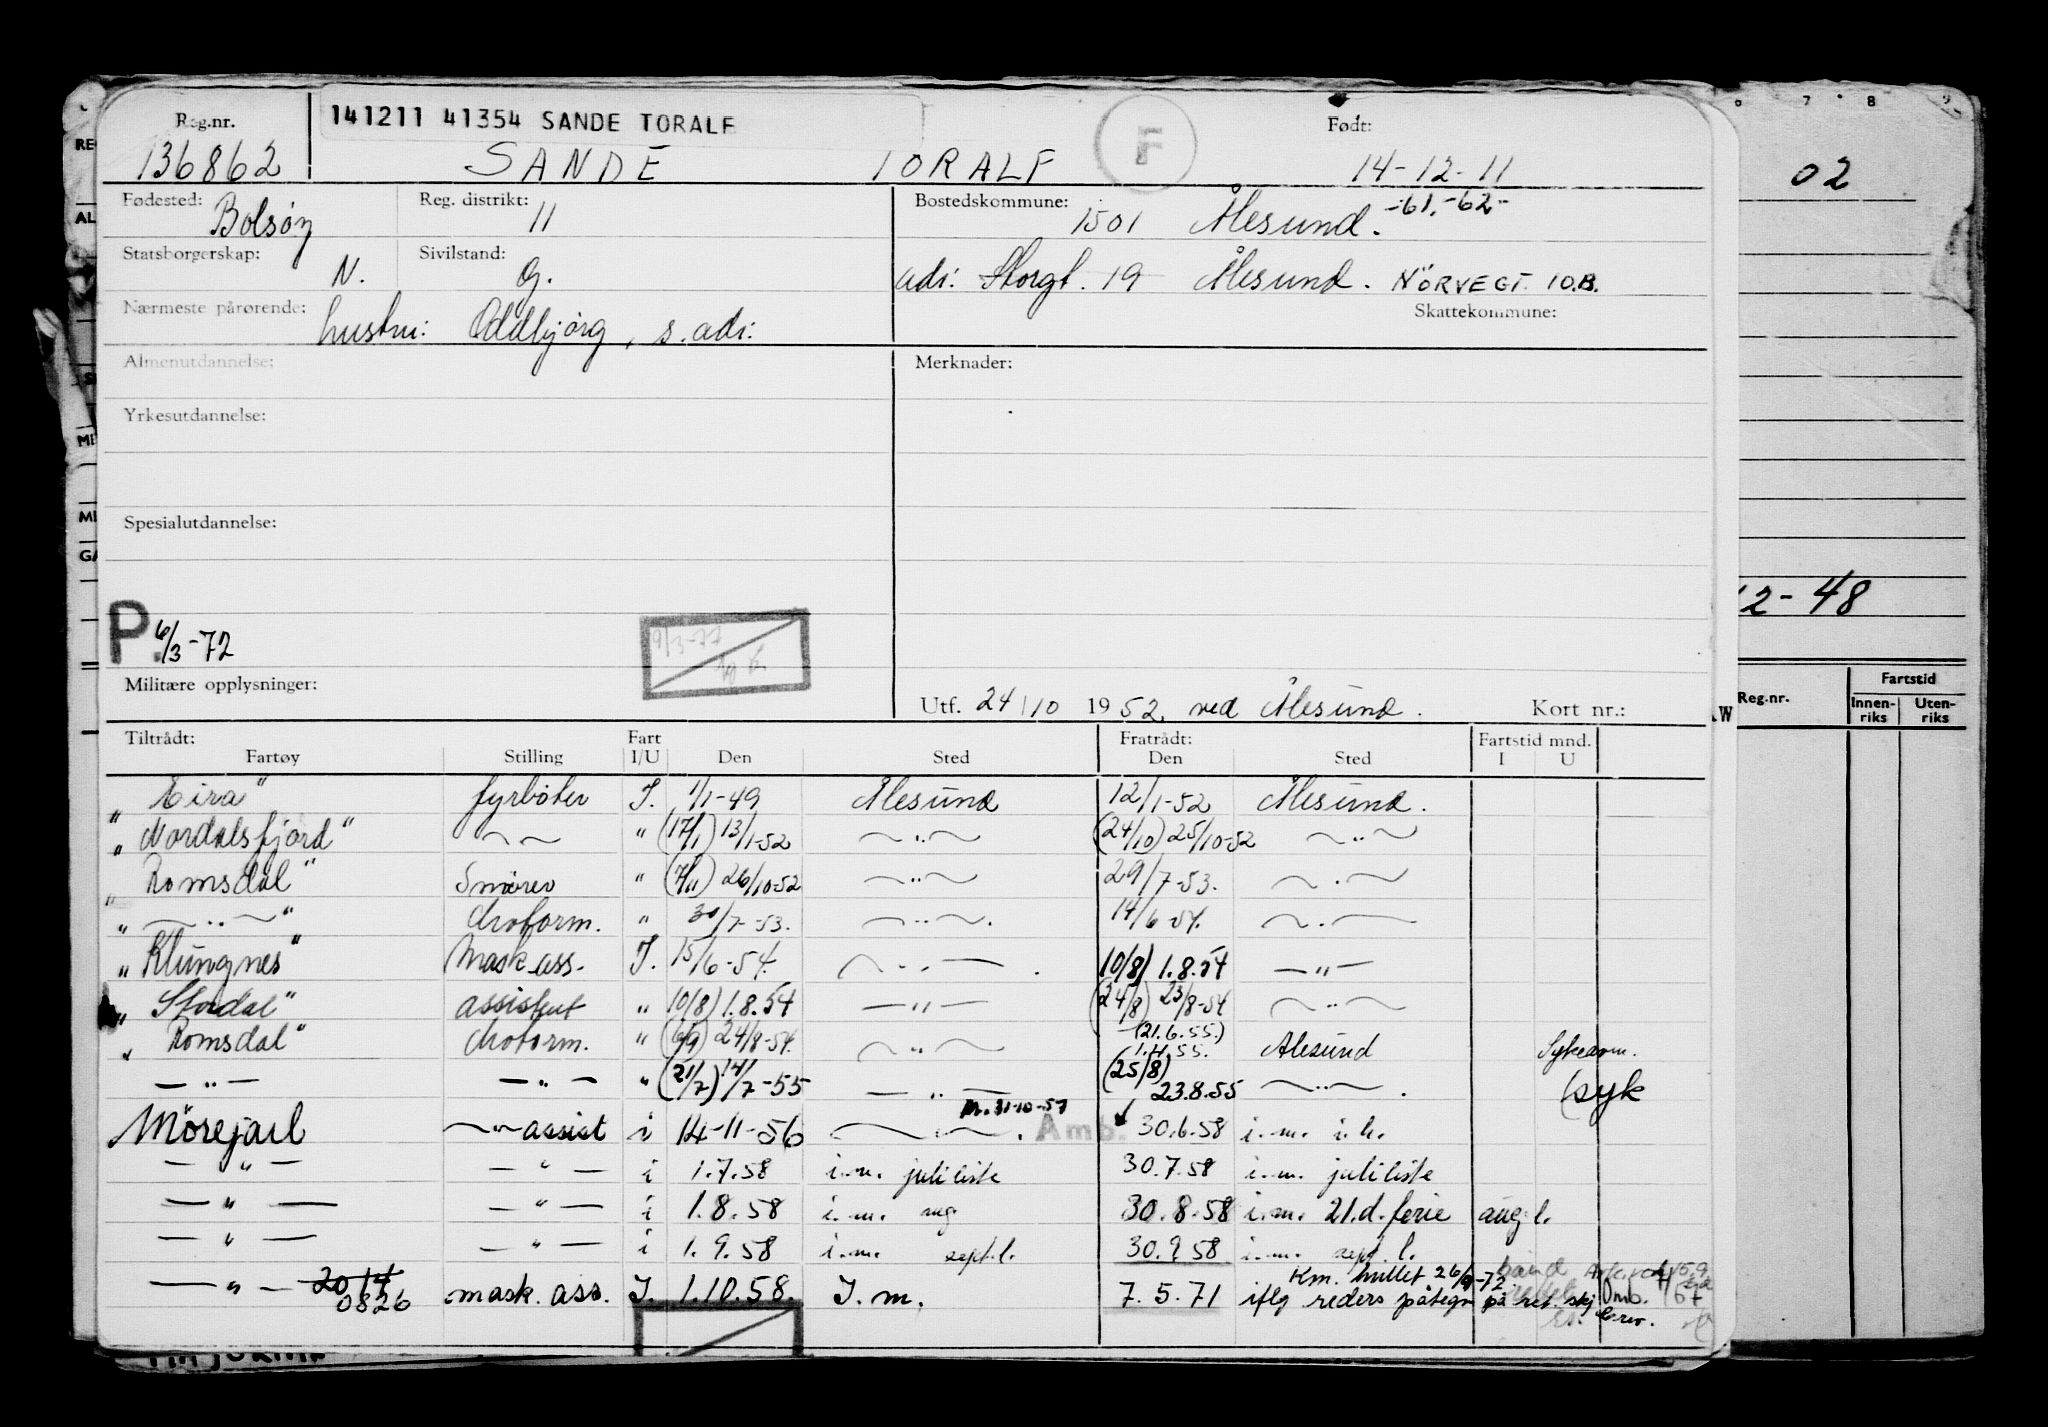 141211 41354 SANDE TORALF
Reg.nr. 136862 SANDE TORALF F Født: 14-12-11
Fødested: Bolsøy Reg. distrikt: 11 Bostedskommune: 1501 Ålesund. -61,-62-
Statsborgerskap: N. Sivilstand: G. adr: Storgt. 19 Ålesund. NÖRVEGT. 10.B.
Nærmeste pårørende: hustru: Oddbjörg, s. adr: Skattekommune:
Almenutdannelse: Merknader:
Yrkesutdannelse:
Spesialutdannelse:
P. 6/3-72 9/3-77
Militære opplysninger: Utf. 24/10 1952 ved Ålesund. Kort nr.:
Tiltrådt: Fart Fratrådt: Fartstid mnd.
Fartøy Stilling I/U Den Sted Den Sted I U
"Eira" fyrböter I. 1/1-49 Ålesund 12/1-52 Ålesund.
"Nordalsfjord" ~~ " (17/1) 13/1-52 ~..~ (24/10) 25/10-52 ~..~
"Romsdal" Smörer " (7/11) 26/10-52 ~..~ 29/7-53. ~.~
"~..~" motorm. " 30/7-53. ~..~. 14/6-54. ~.~
"Klungnes" Mask ass. I. 15/6-54. ~..~. 10/8) 1.8.54 —"—
"Stordal" assistent " 10/8) 1.8.54 —"— (24/8) 23/8-54 ~..~
"Romsdal" motorm. " (6/9) 24/8-54. ~..~ (21.6.55.) 1.4.55. Ålesund Sykeavm.
—"— —"— " (21/7) 14/7-55 —"— (25/8) 23.8.55 ~..~. (syk
Mörejarl ~"~ assist i 14-11-56 ~.~. m. 31-10-57 Amb. 30.6.58 i.m. i.h.
—"— —"— i 1.7.58 i.m. juliliste 30.7.58 i.m. juliliste
—"— —"— i 1.8.58 i.m. aug. 30.8.58 i.m. 21.d. ferie aug l.
—"— —"— i 1.9.58 i.m. sept.l. 30.9.58 i.m. sept. l.
—"— 2014 0826 mask. ass. I. 1.10.58. I.m. 7.5.71 Km. hullet 26/9-72
iflg reders påtegn på ret. skj. brev. Omb.
02
12-48
Reg.nr. Fartstid
Innenriks Utenriks